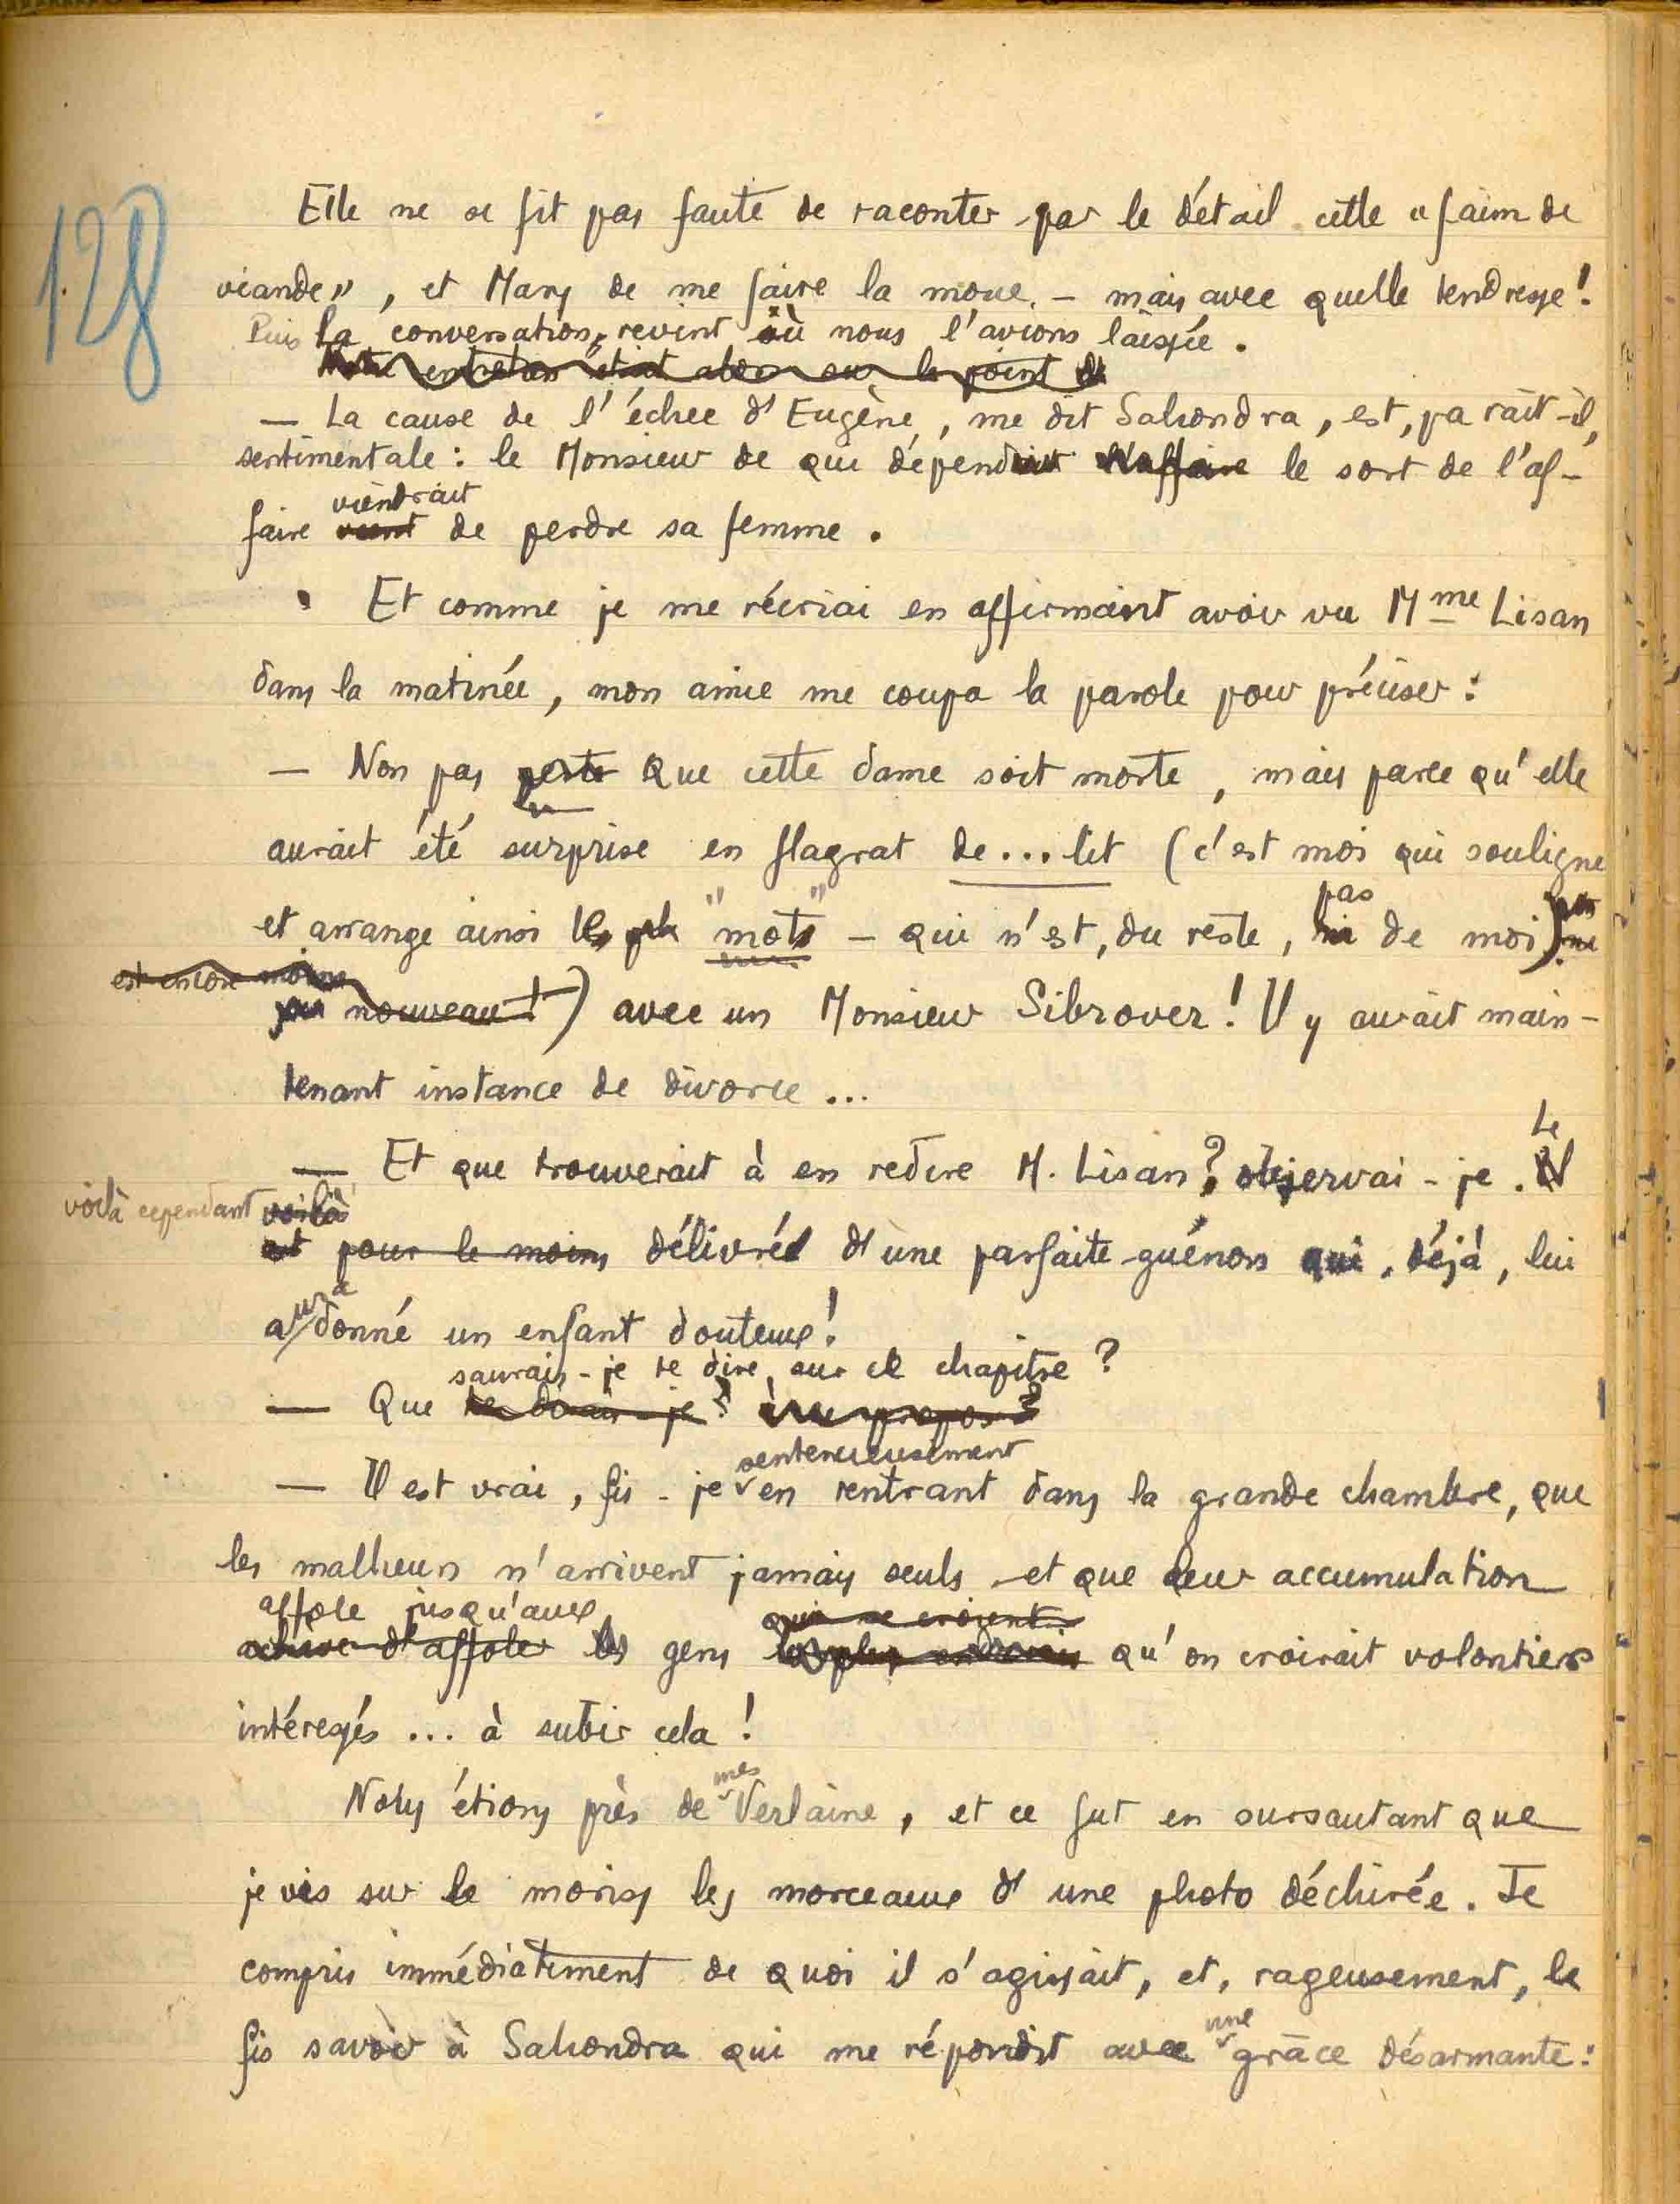 128
Elle ne se fit pas faute de raconter par le détail cette "faim de
viande", et Mary de me faire la moue, – mais avec quelle tendresse!
Puis la conversation revint où nous l'avions laissée.
Notre entretien était alors sur le point de
— La cause de l'échec d'Eugène, me dit Sahondra, est, paraît-il,
sentimentale: le Monsieur de qui dépendait l'affaire le sort de l'af-
viendrait
faire vient de perdre sa femme.
Et comme je me récriai en affirmant avoir vu Mme Lisan
dans la matinée, mon amie me coupa la parole pour préciser:
— Non pas perte que cette dame soit morte, mais parce qu'elle
aurait été surprise en flagrat de... lit (c'est moi qui souligne
pas
et arrange ainsi le "mot" – qui n'est, du reste, ni de moi)
est encore moins
nouveau!) avec un Monsieur Sibrover! Il y aurait main-
tenant instance de divorce...
Le
— Et que trouverait à en redire M. Lisan? observai-je. Il
voilà cependant voilà
est pour le moins délivré d'une parfaite guénon qui, déjà, lui
aura donné un enfant douteux!
saurais-je te dire sur ce chapitre?
— Que te dirais-je? à ce propos?
sentencieusement
— Il est vrai, fis-je en rentrant dans la grande chambre, que
les malheurs n'arrivent jamais seuls et que leur accumulation
affole jusqu'aux qui se croient
achève d'affoler les gens les plus qu'on croirait volontiers
intéressés... à subir cela!
mes
Nous étions près de Verlaine, et ce fut en sursautant que
je vis sur le moris les morceaux d'une photo déchirée. Je
compris immédiatement de quoi il s'agissait, et, rageusement, le
une
fis savoir à Sahondra qui me répondit avec grâce désarmante: